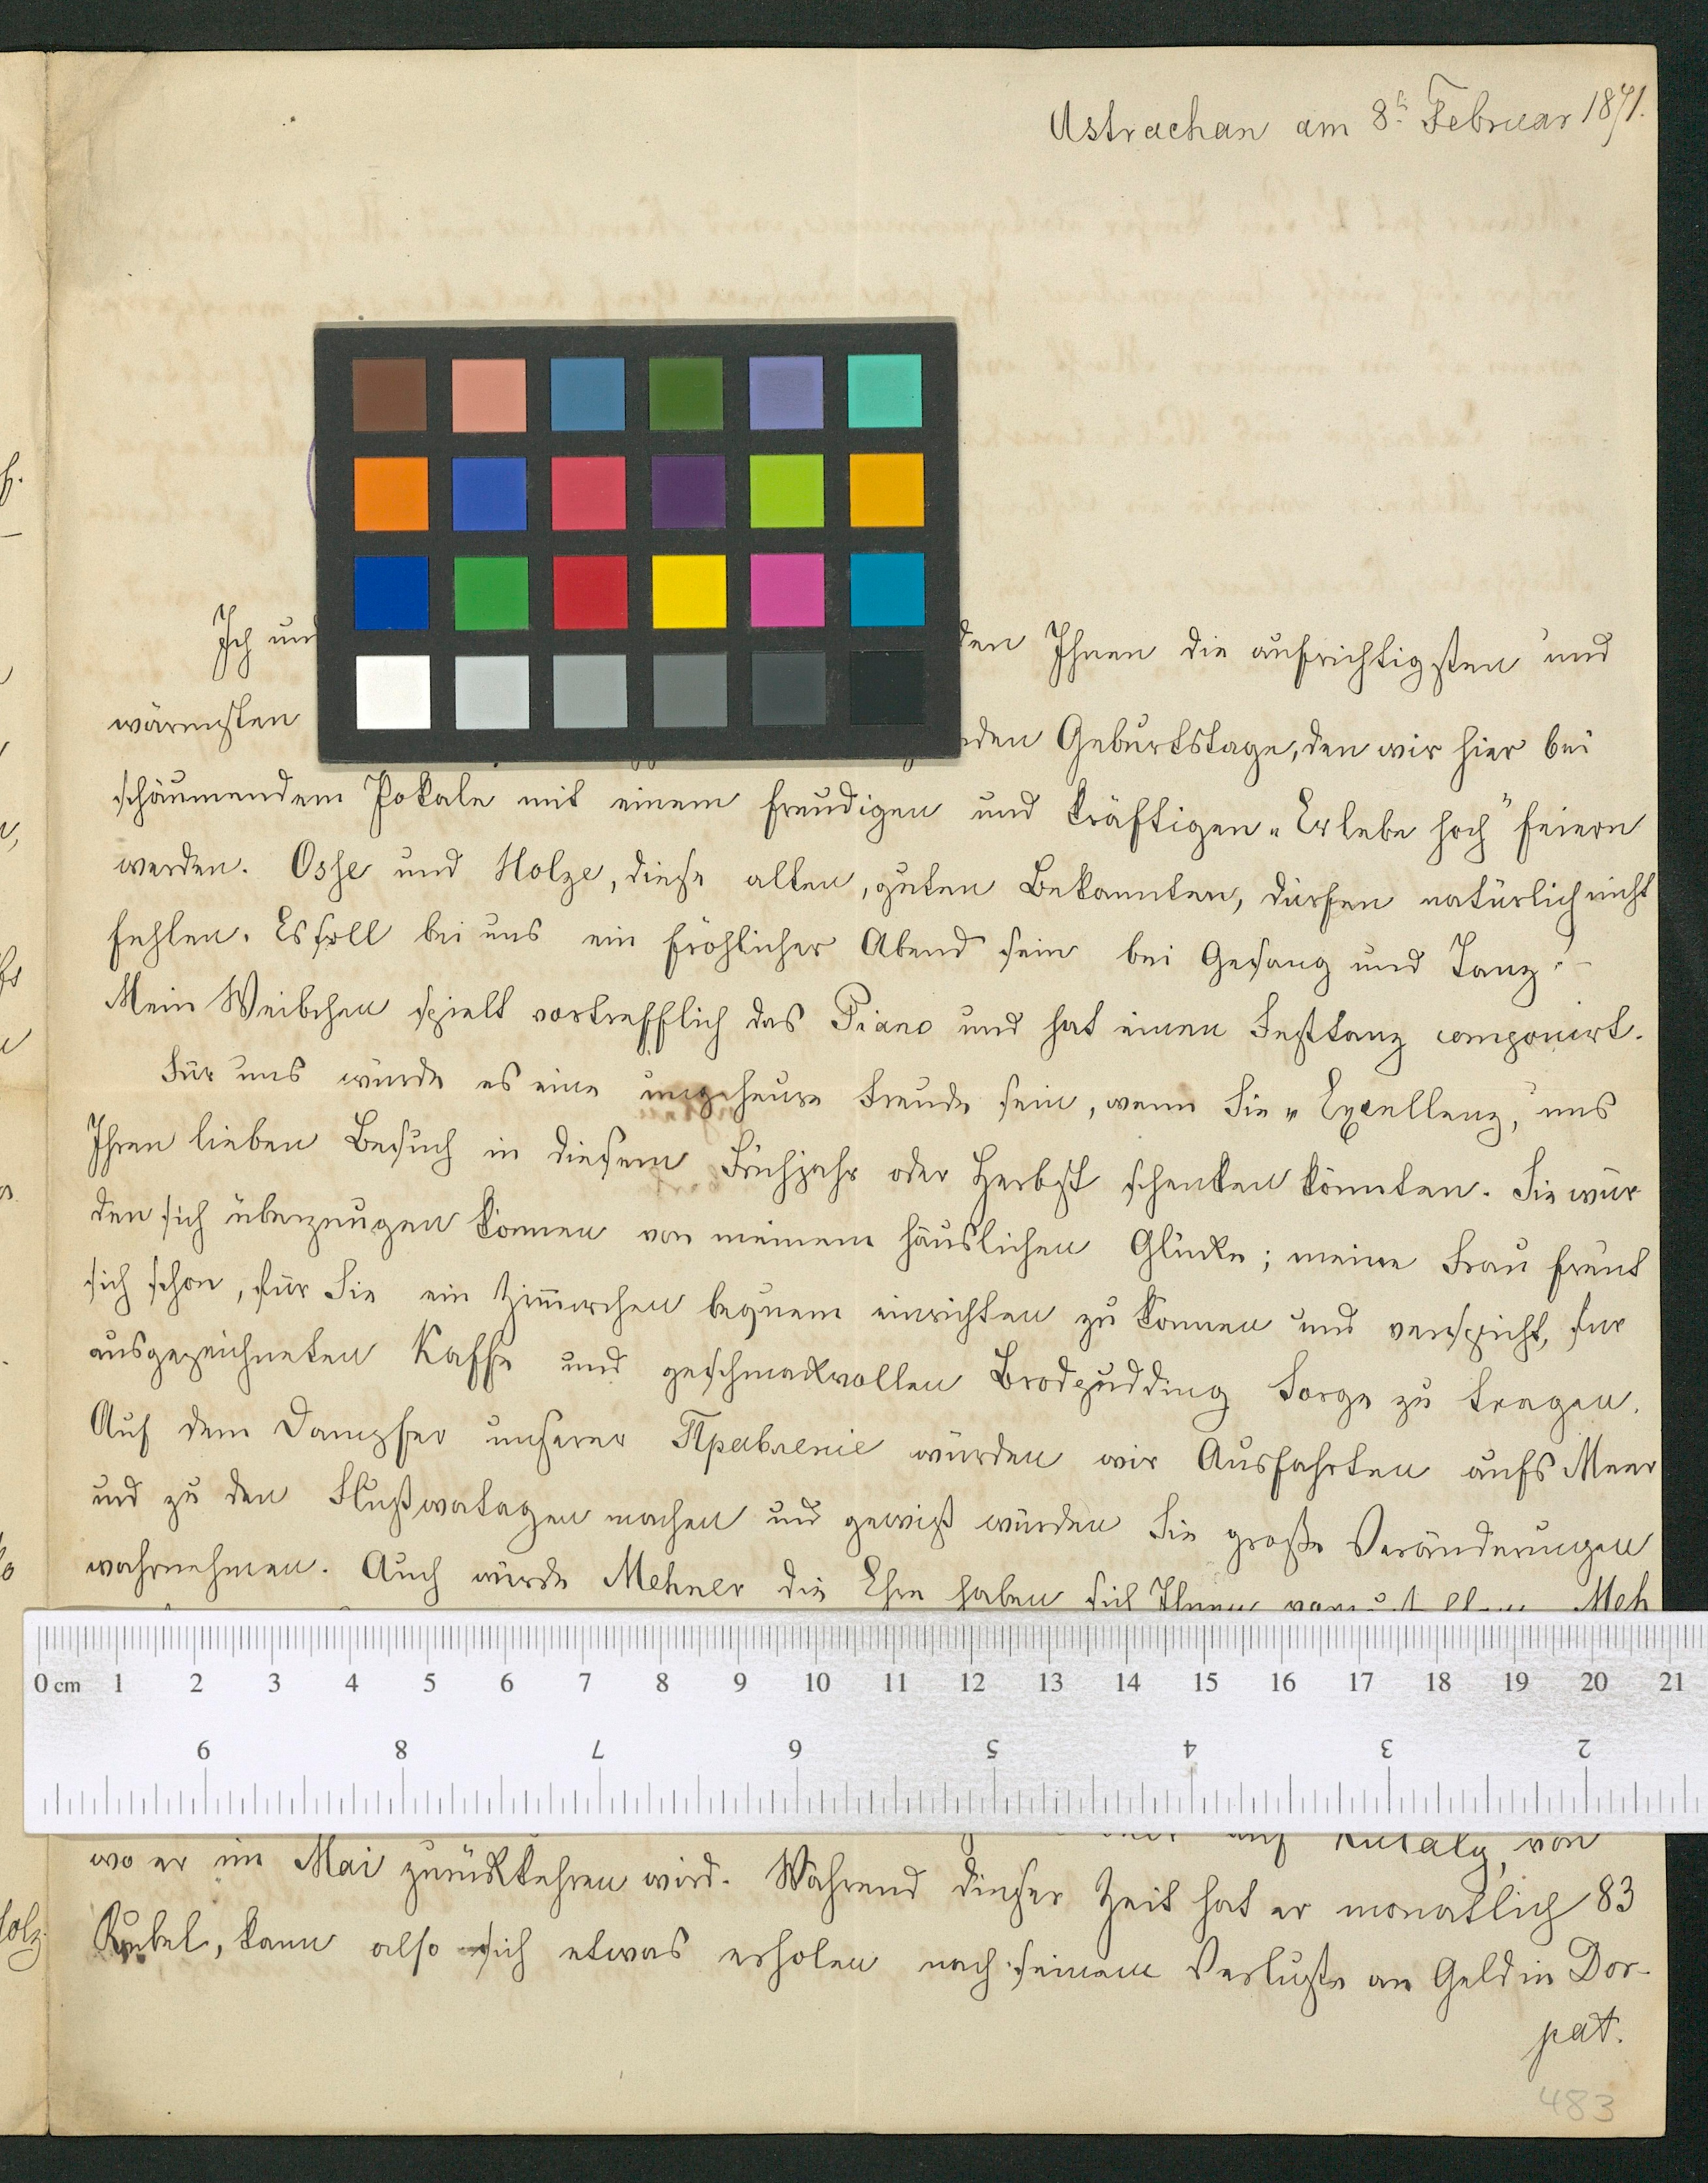 Astrachan am 8t Februar 1871.
Ich und den Ihnen die aufrichtigsten und
wärmsten den Geburtstage, den wir hier bei
schäumendem Pokale mit einem freudigen und kräftigen „Er lebe hoch" feiern
werden. Osse und Holze, diese alten, guten Bekannten, dürfen natürlich nicht
fehlen. Es soll bei uns ein fröhlicher Abend sein bei Gesang und Tanz! –
Mein Weibchen spielt vortrefflich das Piano und hat einen Festtanz componirt.
Für uns würde es eine ungeheure Freude sein, wenn Sie „Excellenz," uns
Ihren lieben Besuch in diesem Frühjahr oder Herbst schenken könnten. Sie wür
den sich überzeugen können von meinem häuslichen Glücke; meine Frau freut
sich schon, für Sie ein Zim̄erchen bequem einrichten zu können und verspricht, für
ausgezeichneten Kaffe und geschmackvollen Brodpudding Sorge zu tragen.
Auf dem Dampfer unserer Правленiе würden wir Ausfahrten aufs Meer
und zu den Flußwatagen machen und gewiß würden Sie große Veränderungen
wahrnehmen. Auch würde Mehner die Ehre haben sich Ihnen vorzustellen. Meh
0 cm 1 2 3 4 5 6 7 8 9 10 11 12 13 14 15 16 17 18 19 20 21
9 8 7 6 5 4 3 2
auf Kulaly, von
wo er im Mai zurückkehren wird. Während dieser Zeit hat er monatlich 83
Rubel, kann also sich etwas erholen nach seinem Verluste an Geld in Dor-
pat.
483